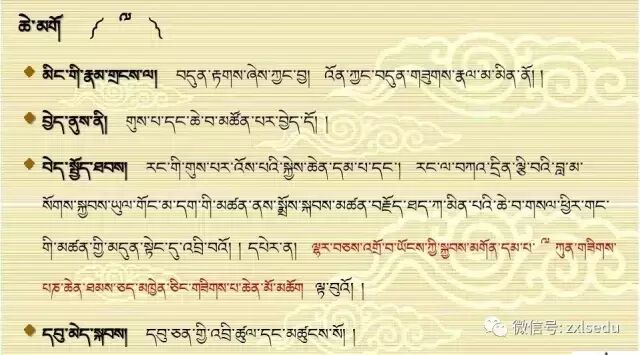 ཆེ་མགོ། ༼ ༸ ༽
མིང་གི་རྣམ་གྲངས་ལ། བདུན་རྟགས་ཞེས་ཀྱང་བྱ། འོན་ཀྱང་བདུན་གཟུགས་རྣལ་མ་མིན་ནོ། །
བྱེད་ནུས་ནི། གུས་པ་དང་ཆེ་བ་མཚོན་པར་བྱེད་དོ། །
བེད་སྤྱོད་ཐབས། རང་གི་གུས་པར་འོས་པའི་སྐྱེས་ཆེན་དམ་པ་དང་། རང་ལ་བཀའ་དྲིན་ལྕི་བའི་བླ་མ་
སོགས་སྐྱབས་ཡུལ་གོང་མ་དག་གི་མཚན་ནས་སྨྲོས་སྐབས་མཚན་བརྗོད་ཐད་ཀ་མིན་པའི་ཆེ་བ་གསལ་ཕྱིར་གང་
གི་མཚན་གྱི་མདུན་སྟེང་དུ་འབྲི་བའོ། །དཔེར་ན། ལྷར་བཅས་འགྲོ་བ་ཡོངས་ཀྱི་སྐྱབས་མགོན་དམ་པ་ ༸ ཀུན་གཟིགས་
པཎ་ཆེན་ཐམས་ཅད་མཁྱེན་ཅིང་གཟིགས་པ་ཆེན་མོ་མཆོག ལྟ་བུའོ། །
དབུ་མེད་སྐབས། དབུ་ཅན་གྱི་འབྲི་ཚུལ་དང་མཚུངས་སོ། །
微信号: zxlsedu